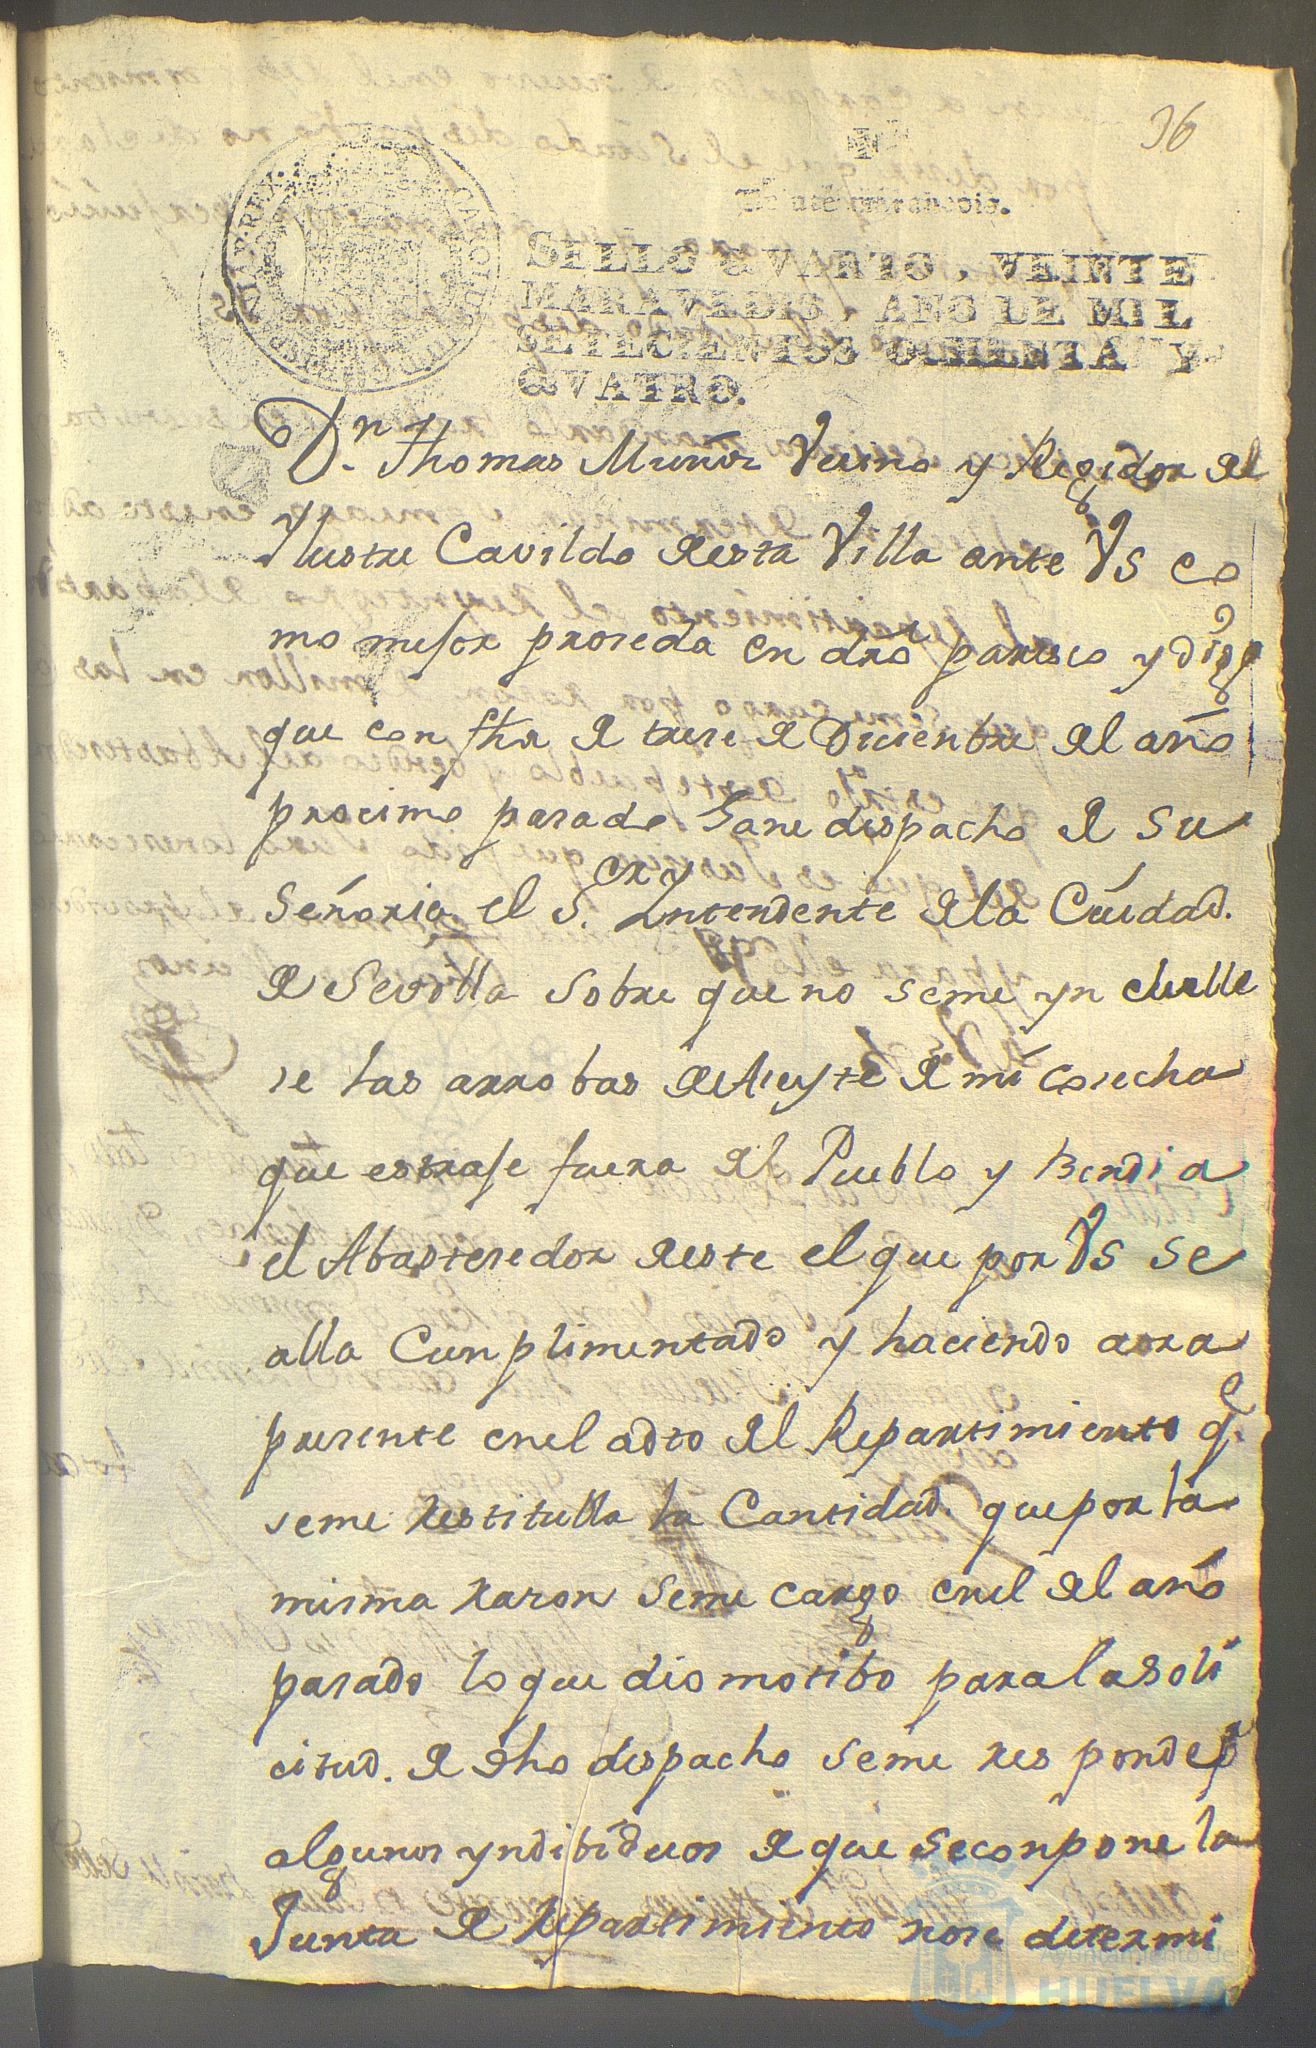 36
Veinte maravedis.
SELLO QVARTO, VEINTE
MARAVEDIS, AÑO DE MIL
SETECIENTOS OCHENTA Y
QVATRO.
Dn. Thomas Muñiz Vecino y Regidor del
Yllustre Cavildo desta Villa ante VS co
mo mejor proceda en dro paresco y digo
que con fha de trece de Diciembre del año
procimo pasado Gane despacho de su
Señoria el Sor. Yntendente de la Ciudad.
de Sevilla sobre que no seme yn clulle
se las arrobas de Aseyte de mi cosecha
que estraje fuera del Pueblo y Bendi a
el Abastecedor deste el que por VS se
alla Cunplimentado y haciendo aora
presente enel acto del Repartimiento qe.
seme Restitulla la Cantidad. que por la
misma rason seme cargo enel del año
pasado lo que dio motibo para la soli
citud. de dho despacho seme responde pr
algunos yndibiduos de que se conpone la
Junta de Repartimiento nose determi
Ayuntamiento de
HUELVA